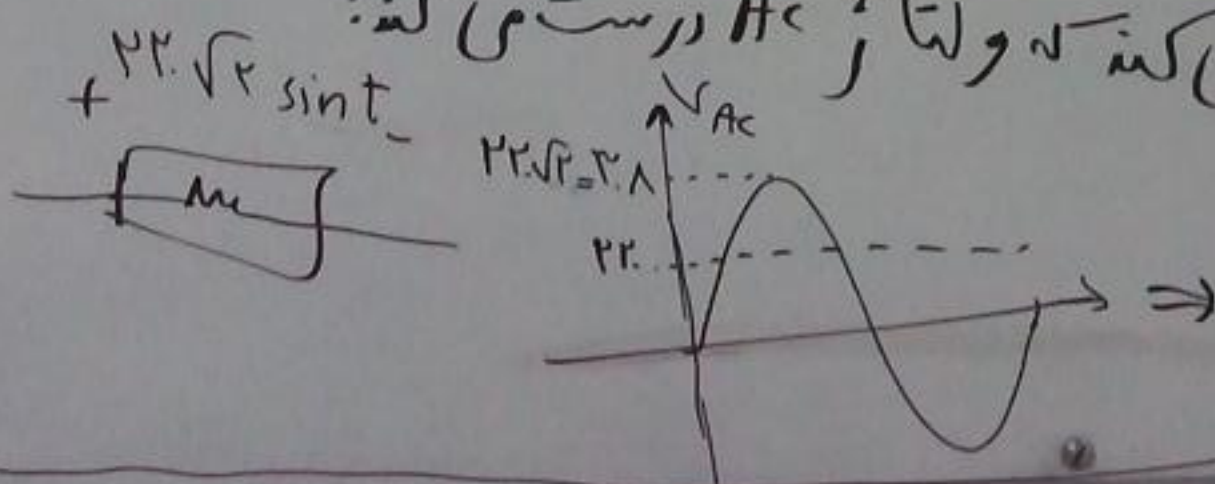 کند که ولتاژ AC درست می کند:
+ ۲۲۰√۲ sint -
V AC
۲۲۰√۲=۳۰۸
۲۲۰
⇒